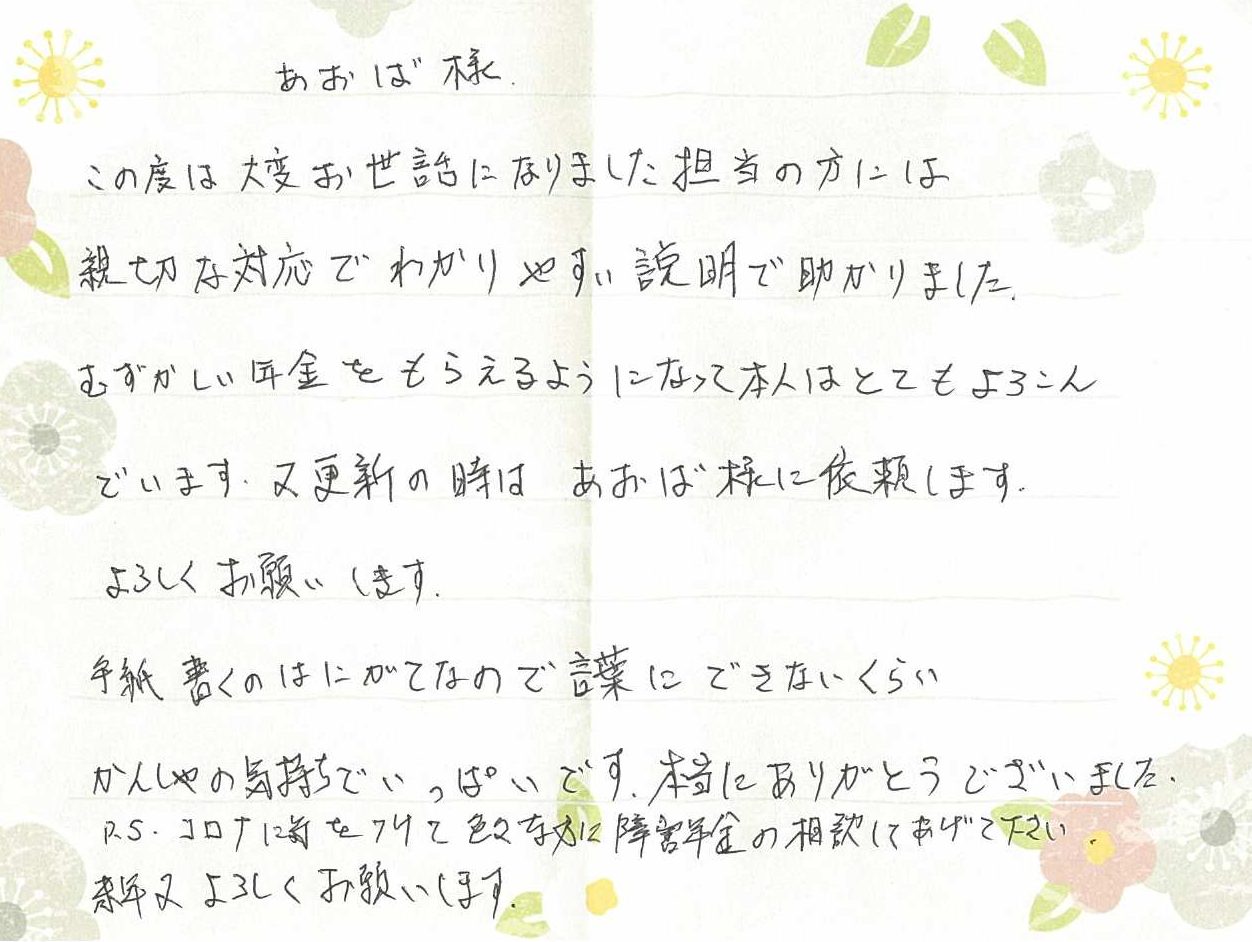 あおば様.
この度は大変お世話になりました担当の方には
親切な対応でわかりやすい説明で助かりました.
むずかしい年金をもらえるようになって本人はとてもよろこん
でいます.又更新の時は あおば様に依頼します.
よろしくお願いします.
手紙書くのはにがてなので言葉にできないくらい
かんしゃの気持ちでいっぱいです.本当にありがとうございました.
P.S.コロナに気をつけて色々な方に障害年金の相談してあげて下さい.
来年又よろしくお願いします.